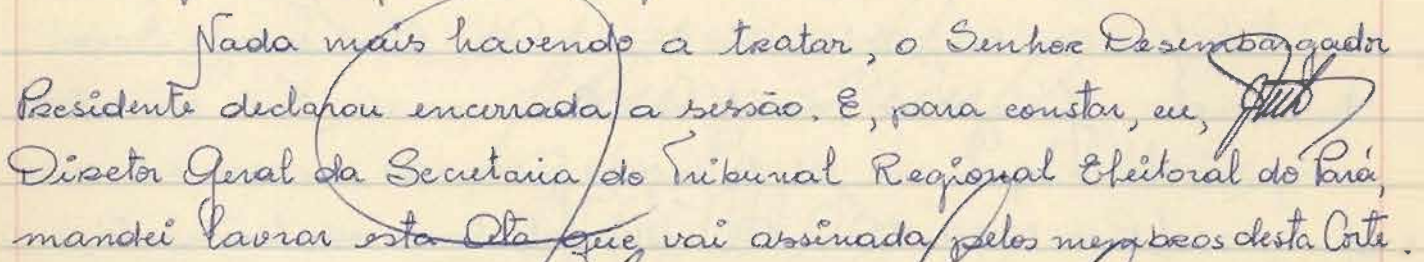 Nada mais havendo a tratar, o Senhor Desembargador
Presidente declarou encerrada a sessão. E, para constar, eu,
Diretor Geral da Secretaria do Tribunal Regional Eleitoral do Pará,
mandei lavrar esta Ata que vai assinada pelos membros desta Corte.